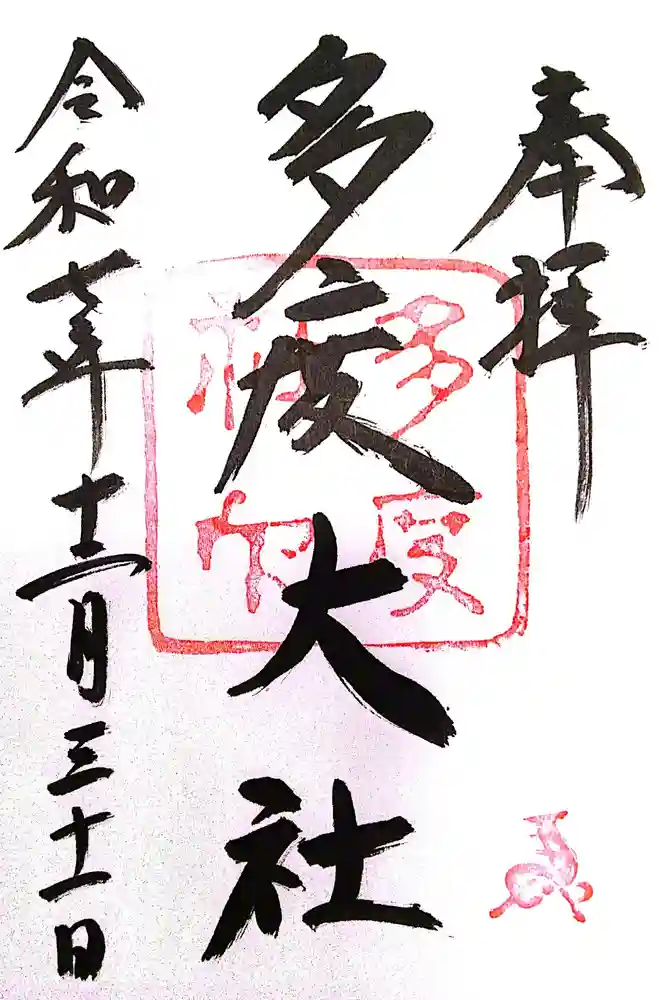 奉拝
多度大社
多度
神社
令和七年十二月三十一日